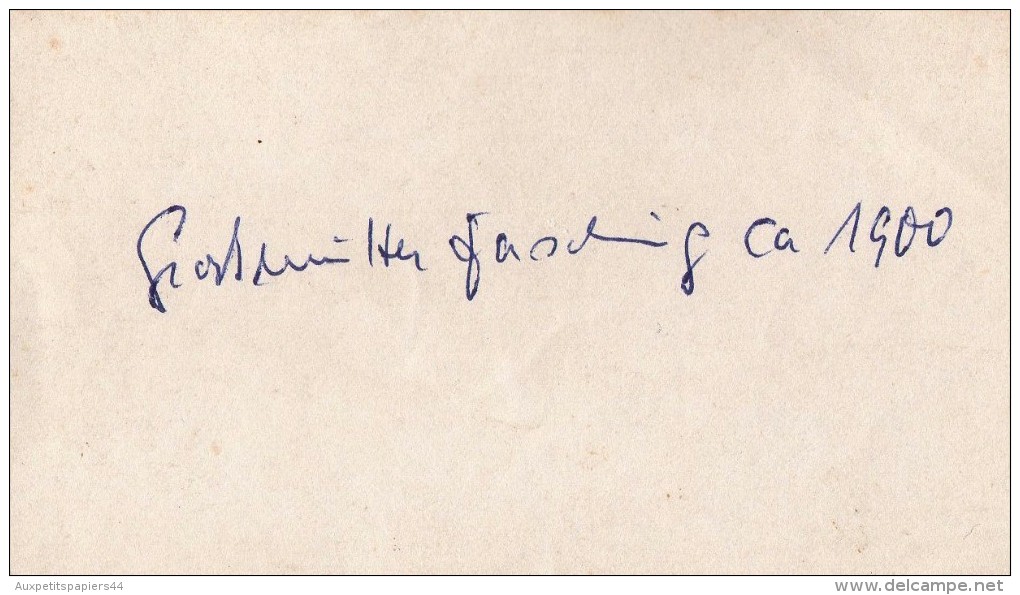 Großmutter Fasching ca 1900
Auxpetitspapiers44
www.delcampe.net